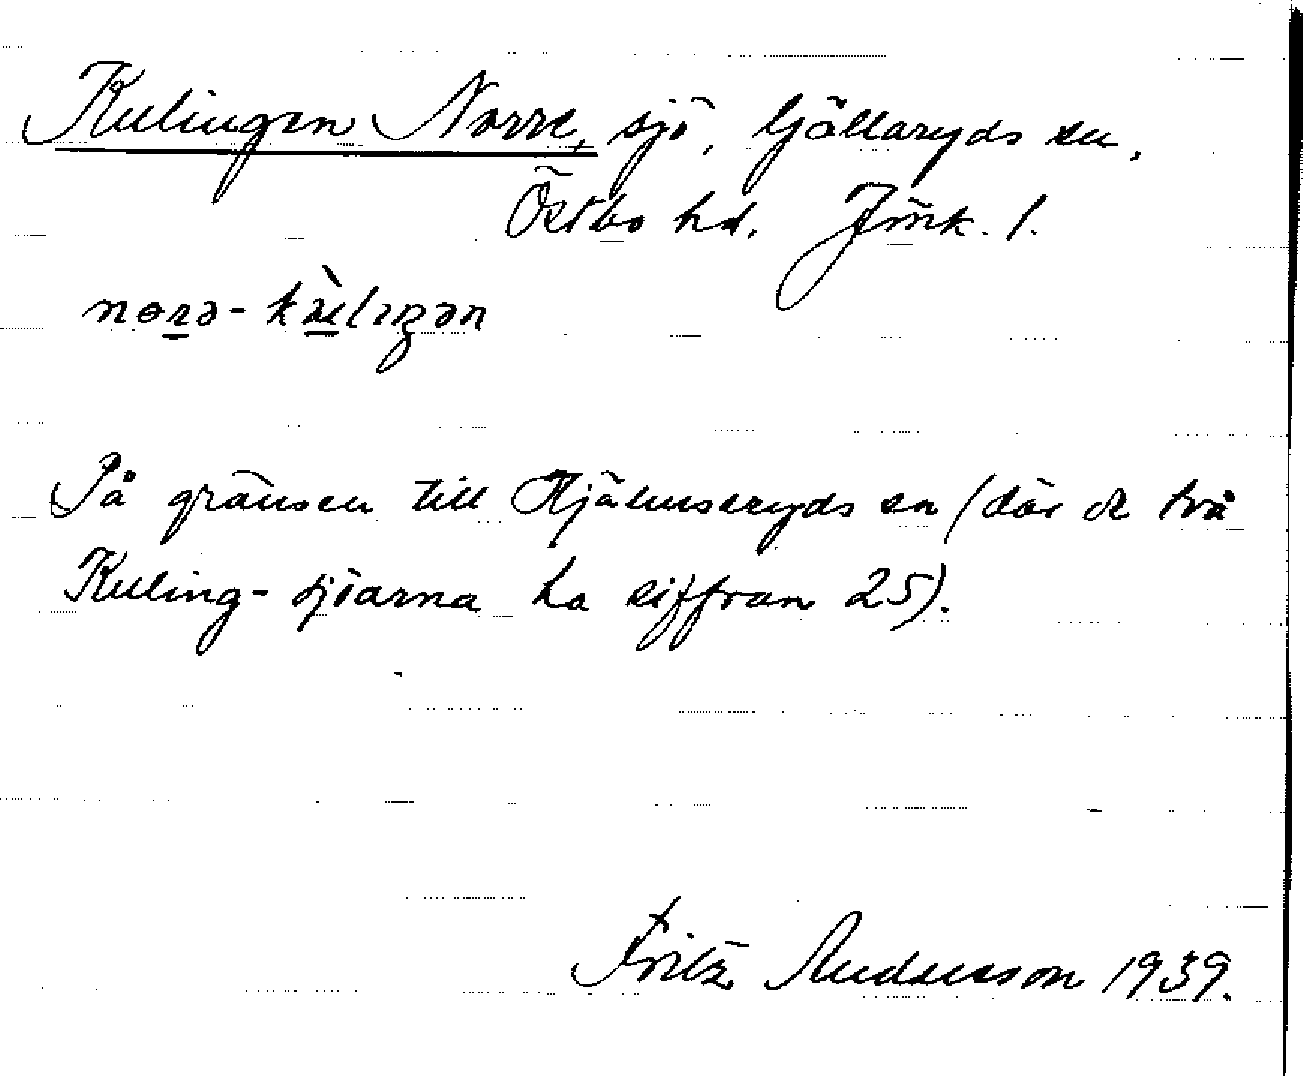 Kulingen Norre, sjö, Gällaryds sn,
Östbo hd. Jmk. l.
nɵrə-kùlıŋən
På gränsen till Hjälmseryds sn (där de två
Kuling-sjöarna ha siffran 25).
Fritz Andersson 1939.